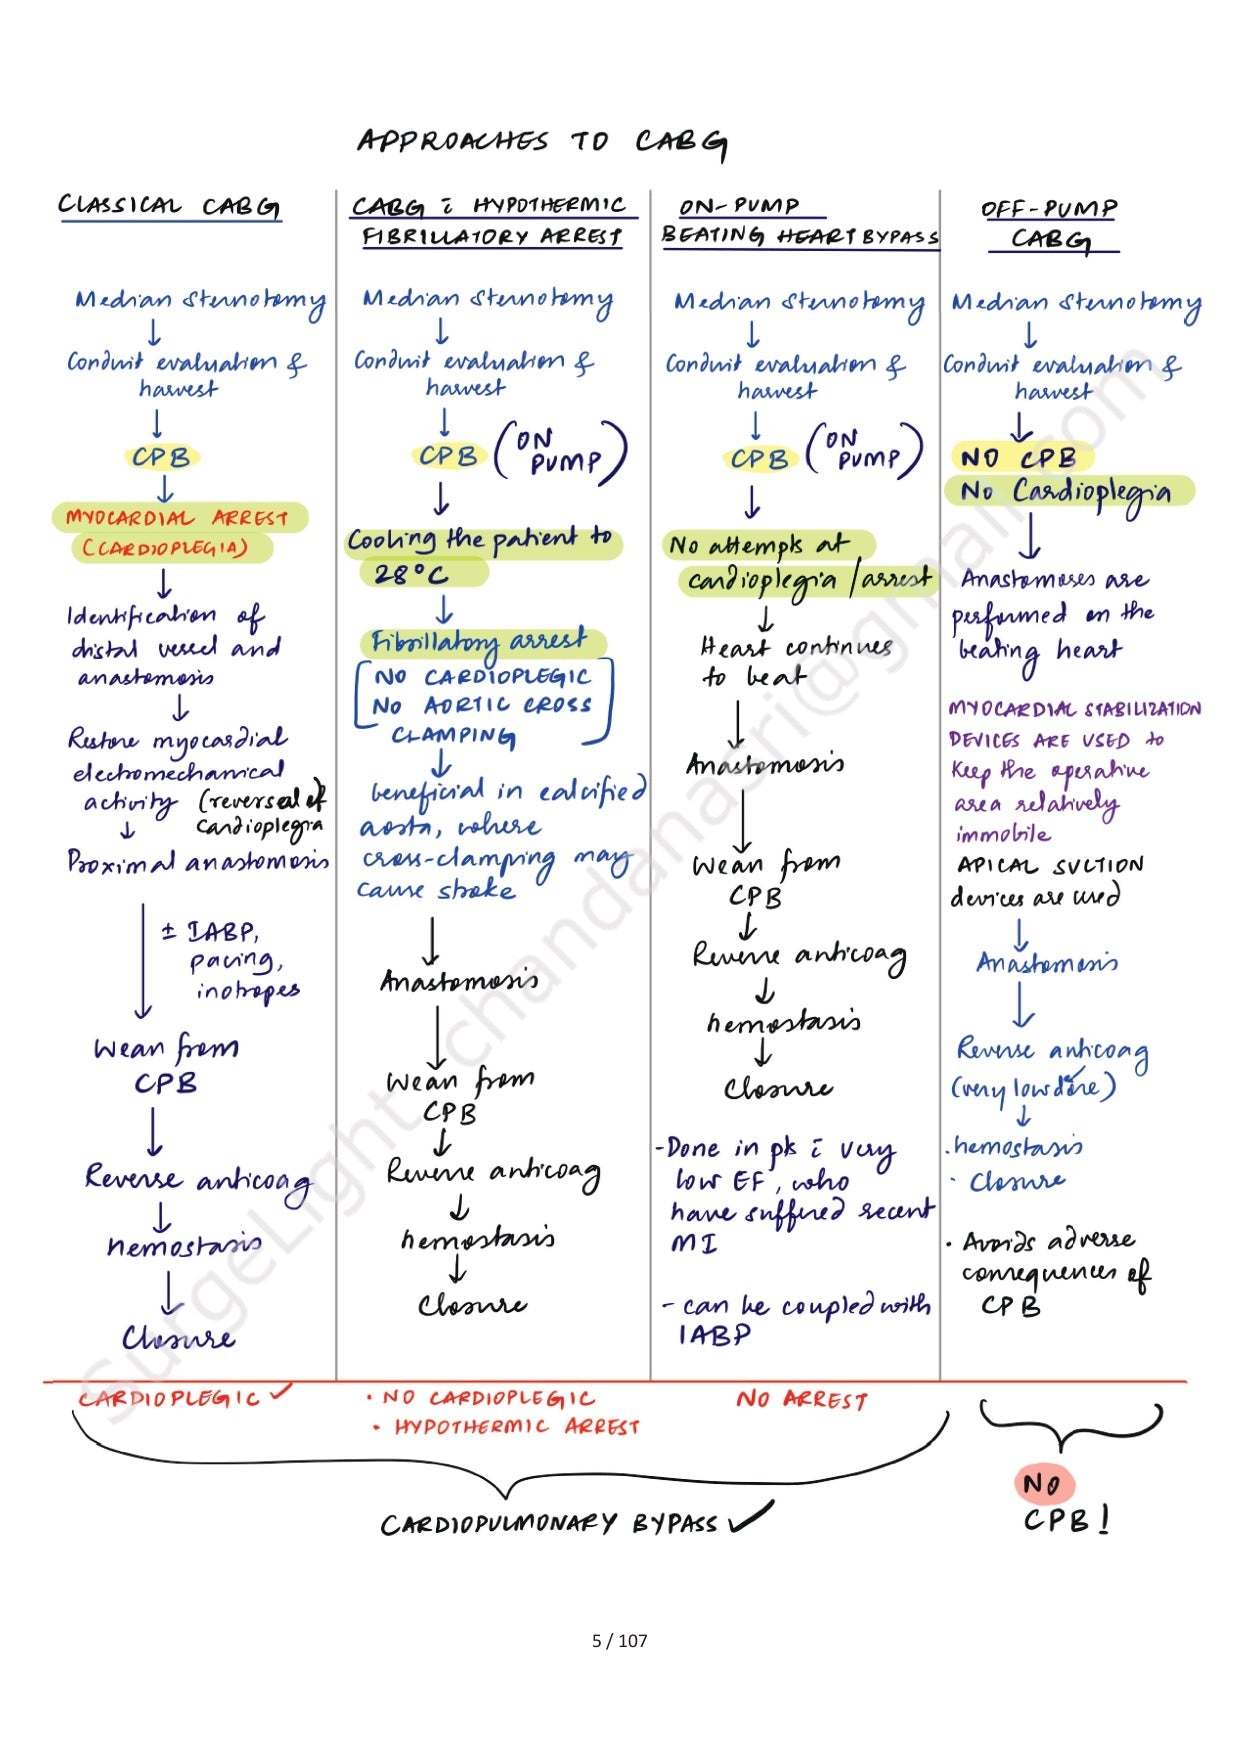 APPROACHES TO CABG
CLASSICAL CABG
Median Sternotomy
↓
Conduit evaluation &
harvest
↓
CPB
↓
MYOCARDIAL ARREST
(CARDIOPLEGIA)
↓
Identification of
distal vessel and
anastomosis
↓
Restore myocardial
electromechanical
activity (reversal of
cardioplegia
↓
Proximal anastomosis
↓
± IABP,
pacing,
inotropes
Wean from
CPB
↓
Reverse anticoag
↓
hemostasis
↓
Closure
CARDIOPLEGIC ✓
CABG c̄ HYPOTHERMIC
FIBRILLATORY ARREST
Median Sternotomy
↓
Conduit evaluation &
harvest
↓
CPB (ON
PUMP)
↓
Cooling the patient to
28°C
↓
Fibrillatory arrest
[NO CARDIOPLEGIC
NO AORTIC CROSS
CLAMPING]
↓
beneficial in calcified
aorta, where
cross-clamping may
cause stroke
↓
Anastomosis
↓
Wean from
CPB
↓
Reverse anticoag
↓
hemostasis
↓
Closure
• NO CARDIOPLEGIC
• HYPOTHERMIC ARREST
ON-PUMP
BEATING HEART BYPASS
Median Sternotomy
↓
Conduit evaluation &
harvest
↓
CPB (ON
PUMP)
↓
No attempts at
cardioplegia / arrest
↓
Heart continues
to beat
↓
Anastomosis
↓
Wean from
CPB
↓
Reverse anticoag
↓
hemostasis
↓
Closure
- Done in pts c̄ very
low EF, who
have suffered recent
MI
- can be coupled with
IABP
NO ARREST
OFF-PUMP
CABG
Median Sternotomy
↓
Conduit evaluation &
harvest
↓
NO CPB
No Cardioplegia
↓
Anastomoses are
performed on the
beating heart
MYOCARDIAL STABILIZATION
DEVICES ARE USED to
Keep the operative
area relatively
immobile
APICAL SUCTION
devices are used
↓
Anastomosis
↓
Reverse anticoag
(very low dose)
↓
• hemostasis
• Closure
• Avoids adverse
consequences of
CPB
CARDIOPULMONARY BYPASS ✓
NO
CPB!
SurgeLight chandanasri@gmail.com
5 / 107